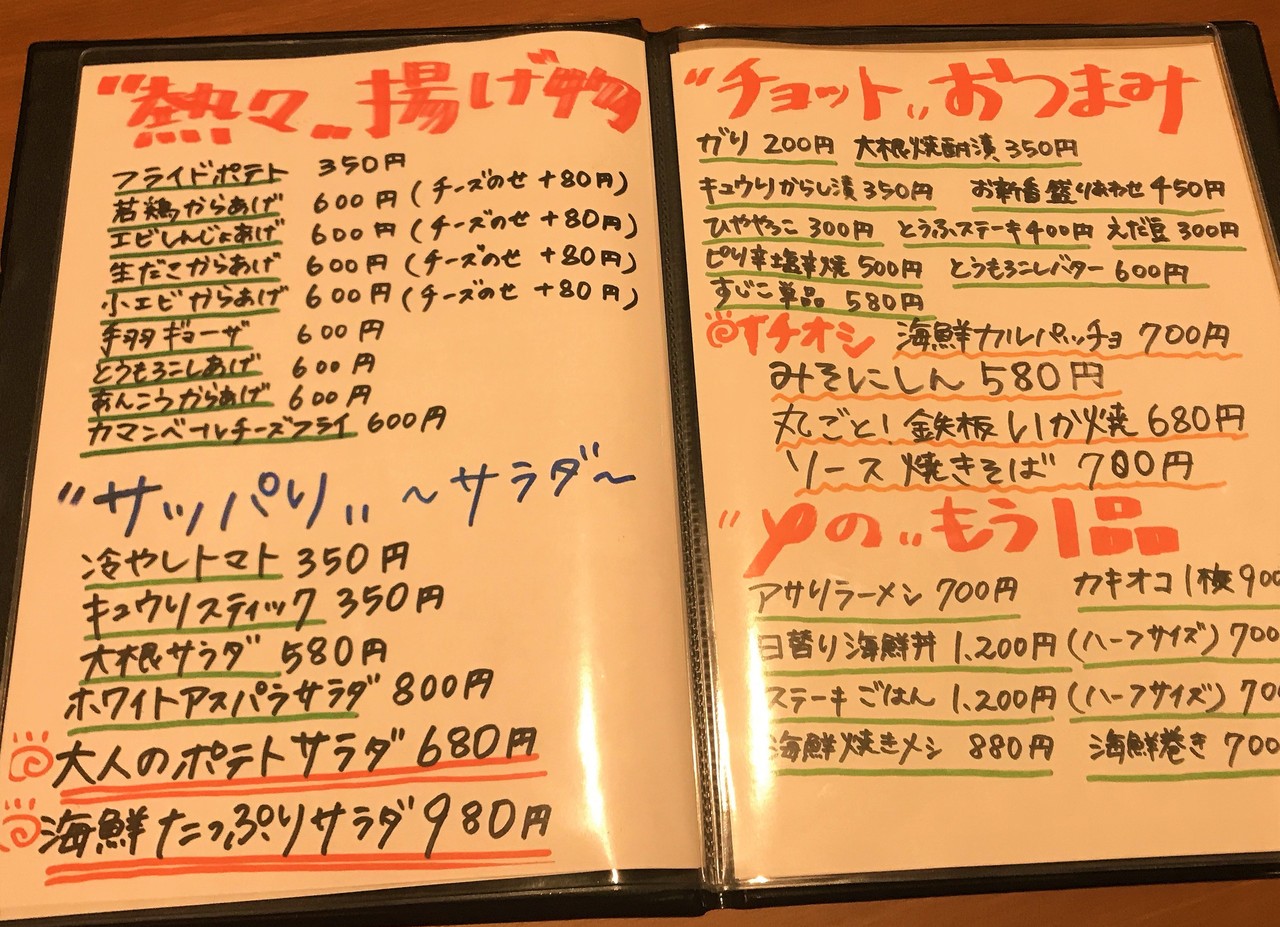 "熱々" 揚げ物
フライドポテト 350円
若鶏からあげ 600円 (チーズのせ +80円)
エビしんじょあげ 600円 (チーズのせ +80円)
生だこからあげ 600円 (チーズのせ +80円)
小エビからあげ 600円 (チーズのせ +80円)
手羽ギョーザ 600円
とうもろこしあげ 600円
あんこうからあげ 600円
カマンベールチーズフライ 600円
"サッパリ" ～サラダ～
冷やしトマト 350円
キュウリスティック 350円
大根サラダ 580円
ホワイトアスパラサラダ 800円
大人のポテトサラダ 680円
海鮮たっぷりサラダ 980円
"チョット" おつまみ
ガリ 200円 大根焼酎漬 350円
キュウリからし漬 350円 お新香盛りあわせ 450円
ひややっこ 300円 とうふステーキ 400円 えだ豆 300円
ピリ辛塩辛焼 500円 とうもろこしバター 600円
すじこ単品 580円
イチオシ 海鮮カルパッチョ 700円
みそにしん 580円
丸ごと!鉄板いか焼 680円
ソース焼きそば 700円
"〆の" もう1品
アサリラーメン 700円 カキオコ1枚 900
日替り海鮮丼 1,200円 (ハーフサイズ) 700
ステーキごはん 1,200円 (ハーフサイズ) 70
海鮮焼きメシ 880円 海鮮巻き 700